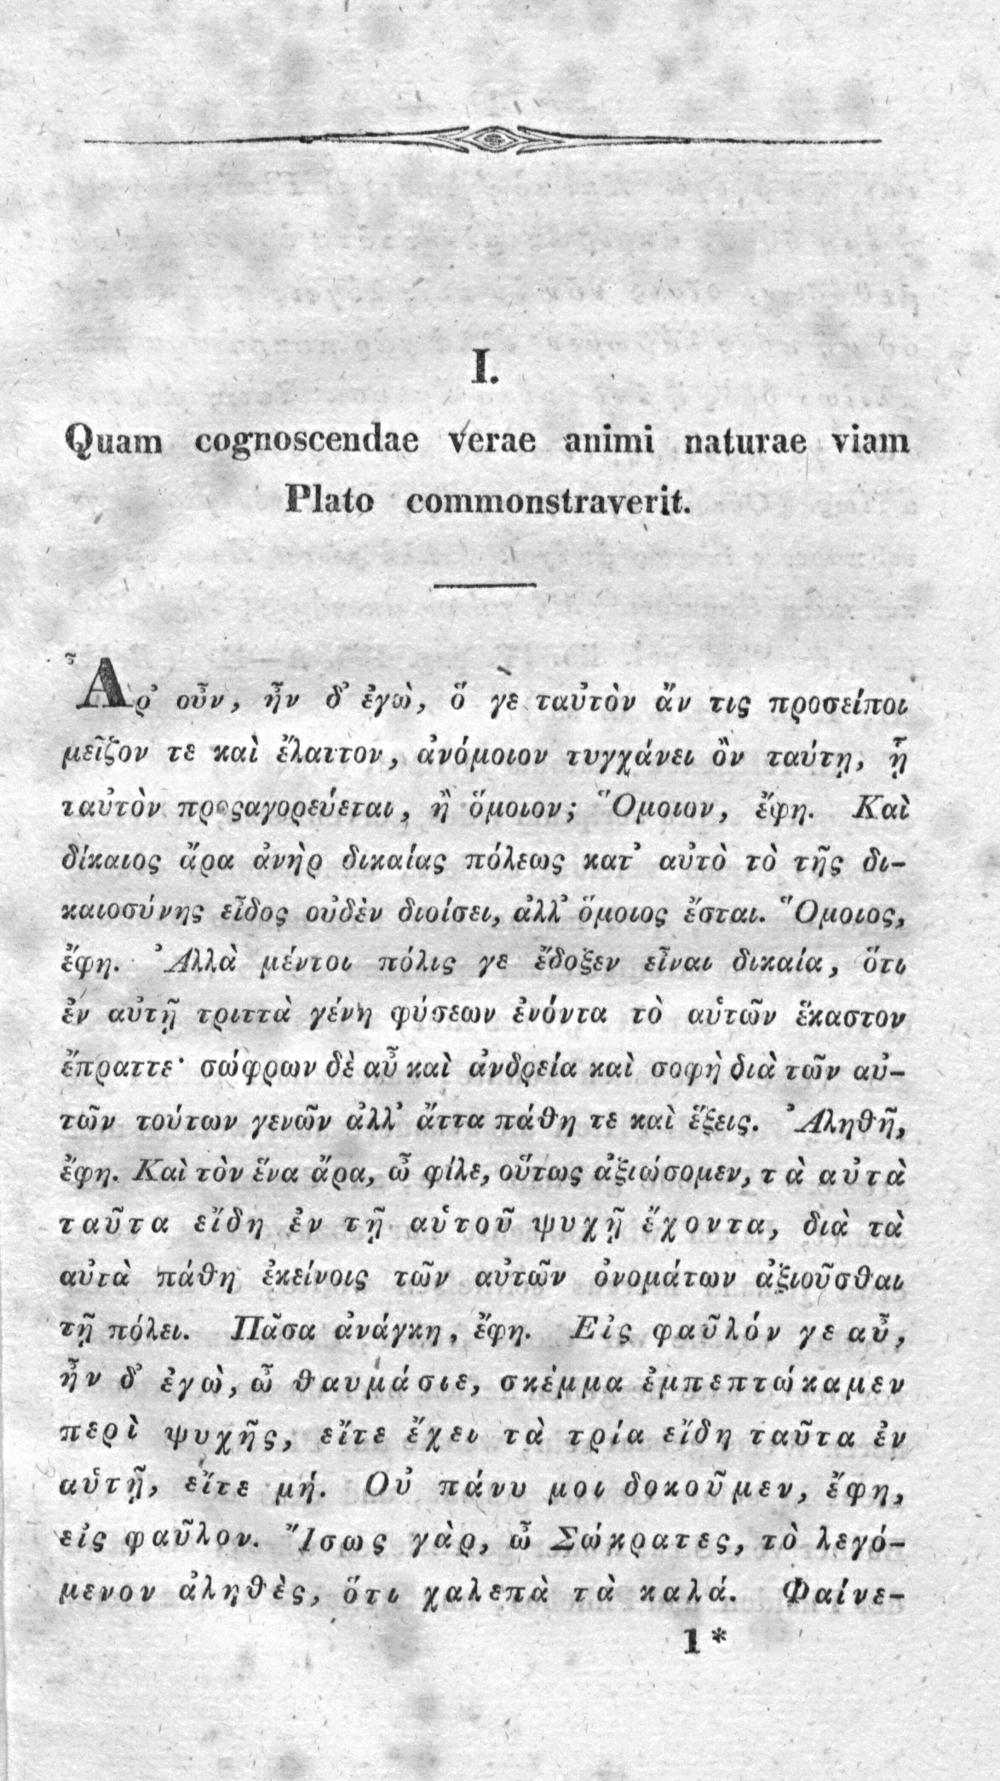 I.
Quam cognoscendae verae animi naturae viam
Plato commonstraverit.
Ἆρ᾽ οὖν, ἦν δ᾽ ἐγὼ, ὅ γε ταὐτὸν ἄν τις προσείποι
μεῖζον τε καὶ ἔλαττον, ἀνόμοιον τυγχάνει ὂν ταύτῃ, ᾗ
ταὐτὸν προςαγορεύεται, ἢ ὅμοιον; Ὅμοιον, ἔφη. Καὶ
δίκαιος ἄρα ἀνὴρ δικαίας πόλεως κατ᾽ αὐτὸ τὸ τῆς δι-
καιοσύνης εἶδος οὐδὲν διοίσει, ἀλλ᾽ ὅμοιος ἔσται. Ὅμοιος,
ἔφη. Ἀλλὰ μέντοι πόλις γε ἔδοξεν εἶναι δικαία, ὅτι
ἐν αὐτῇ τριττὰ γένη φύσεων ἐνόντα τὸ αὑτῶν ἕκαστον
ἔπραττε· σώφρων δὲ αὖ καὶ ἀνδρεία καὶ σοφὴ διὰ τῶν αὐ-
τῶν τούτων γενῶν ἀλλ᾽ ἄττα πάθη τε καὶ ἕξεις. Ἀληθῆ,
ἔφη. Καὶ τὸν ἕνα ἄρα, ὦ φίλε, οὕτως ἀξιώσομεν, τὰ αὐτὰ
ταῦτα εἴδη ἐν τῇ αὑτοῦ ψυχῇ ἔχοντα, διὰ τὰ
αὐτὰ πάθη ἐκείνοις τῶν αὐτῶν ὀνομάτων ἀξιοῦσθαι
τῇ πόλει. Πᾶσα ἀνάγκη, ἔφη. Εἰς φαῦλόν γε αὖ,
ἦν δ᾽ ἐγὼ, ὦ θαυμάσιε, σκέμμα ἐμπεπτώκαμεν
περὶ ψυχῆς, εἴτε ἔχει τὰ τρία εἴδη ταῦτα ἐν
αὑτῇ, εἴτε μή. Οὐ πάνυ μοι δοκοῦμεν, ἔφη,
εἰς φαῦλον. Ἴσως γὰρ, ὦ Σώκρατες, τὸ λεγό-
μενον ἀληθὲς, ὅτι χαλεπὰ τὰ καλά. Φαίνε-
1 *